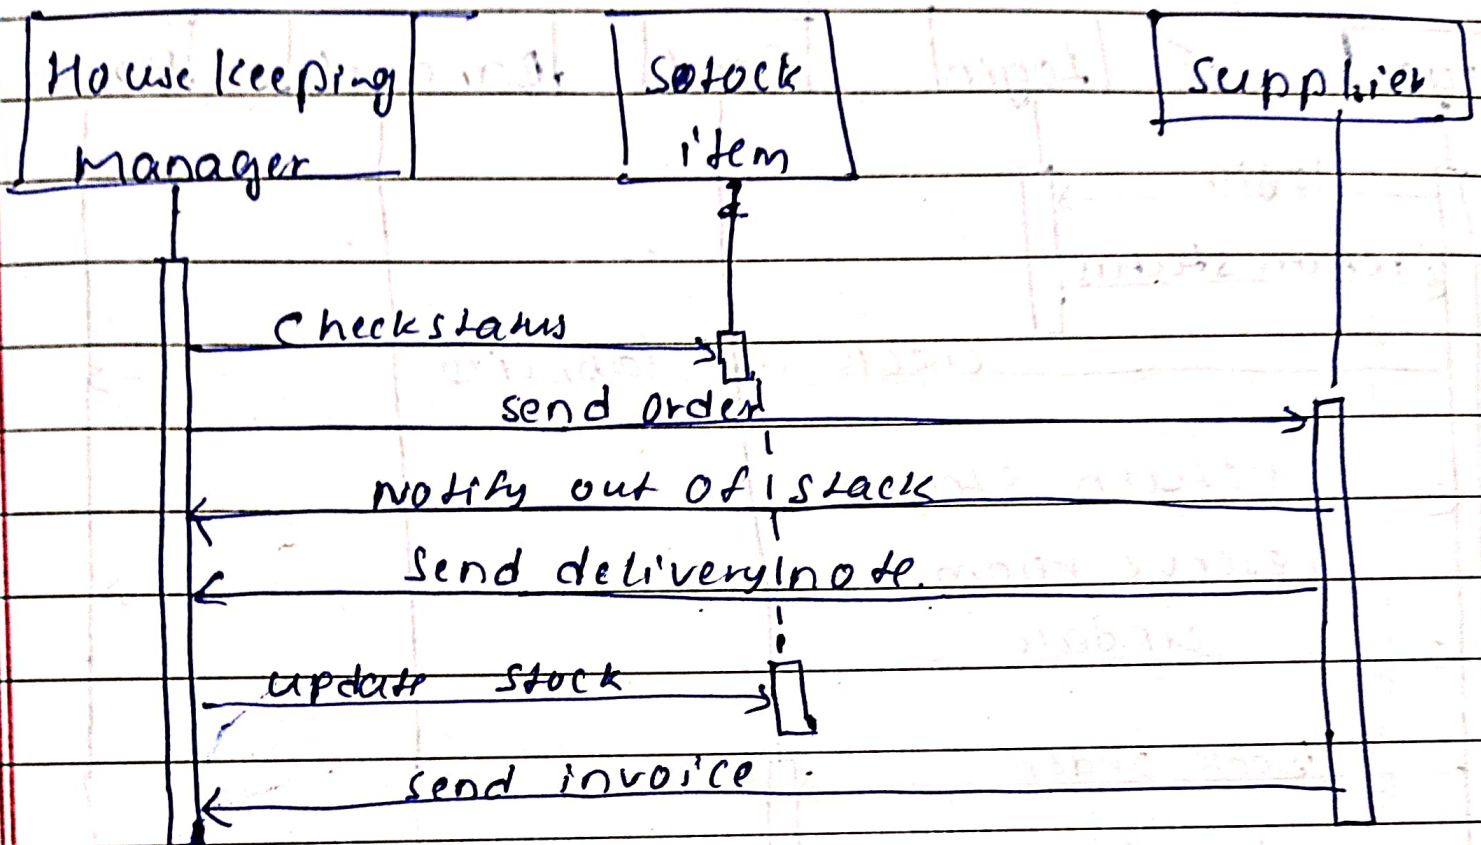 House keeping
Manager
Sotock
item
Supplier
Check status
send order
Notify out of stack
Send delivery note.
update stock
send invoice